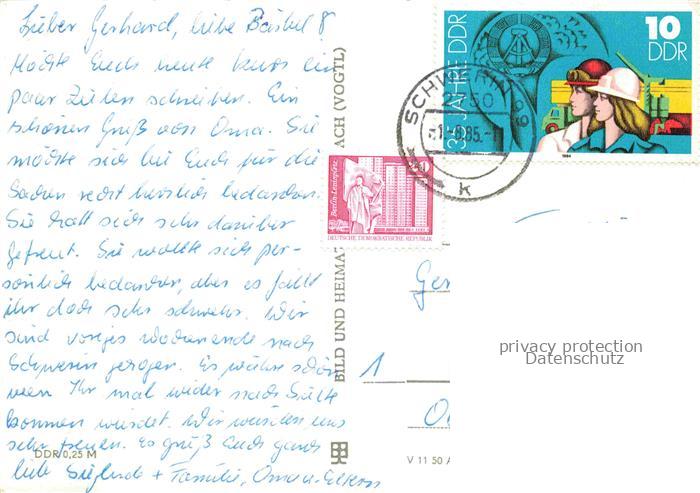 Lieber Gerhard, liebe Bärbel &
Möchte Euch heute kurz ein
paar Zeilen schreiben. Ein
schönen Gruß von Oma. Sie
möchte sich bei Euch für die
Sachen recht herzlich bedanken.
Sie hatt sich sehr darüber
gefreut. Sie wollte sich per-
sönlich bedanken, aber es fällt
ihr doch sehr schwehr. Wir
sind voriges Wochenende nach
Schwerin gezogen. Es währe schön
wenn Ihr mal wider nach
kommen würdet. Wir würden uns
sehr freuen. Es grüß Euch ganz
lieb Sieglinde + Familie, Oma u. Eltern
DDR 0,25 M
BILD UND HEIMAT
ACH (VOGTL)
35 JAHRE DDR
10
DDR
1984
SCHWERIN 99
2750
-8.85.-1
k
Berlin, Leninplatz
DEUTSCHE DEMOKRATISCHE REPUBLIK
Ger
1
O
V 11 50 A
privacy protection
Datenschutz